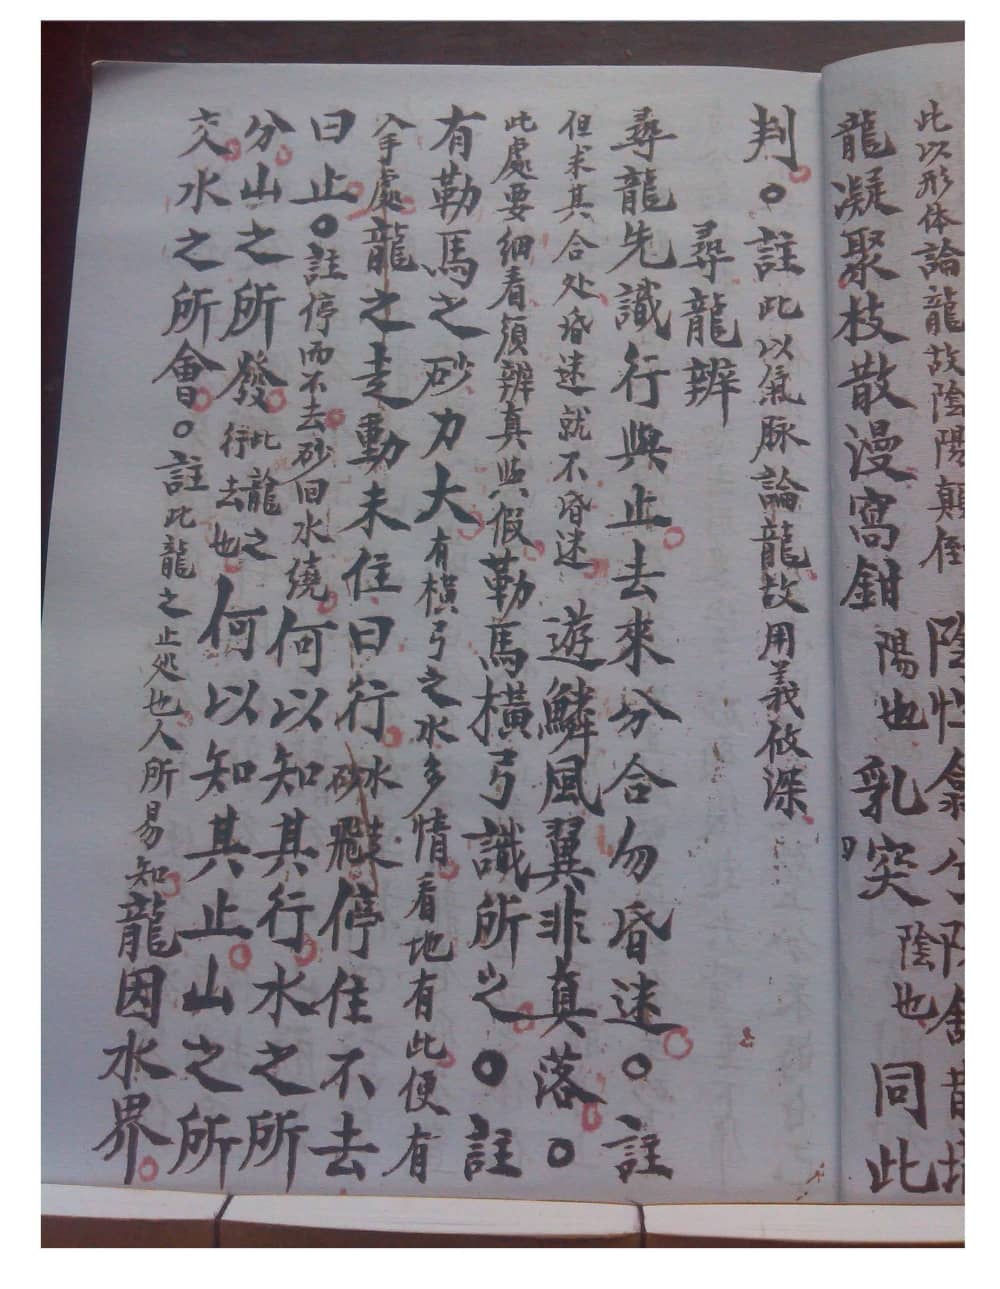 此以形体論龍故陰陽顛倒陰性
龍凝聚枝散漫窩鉗陽也乳突陰也同此
判。註此以氣脉論龍故用義攸深
尋龍辨
尋龍先識行與止去來分合勿昏迷。註
但求其合处昏迷就不昏迷遊鱗風翼非真落。
此處要細看須辨真與假勒馬橫弓識所之。註
有勒馬之砂力大有橫弓之水多情看地有此便有
入手處龍之走動未住曰行水砂飛停住不去
曰止。註停而不去砂回水繞何以知其行水之所
分山之所發此龍之行去也何以知其止山之所
交水之所會。註此龍之止処也人所易知龍因水界